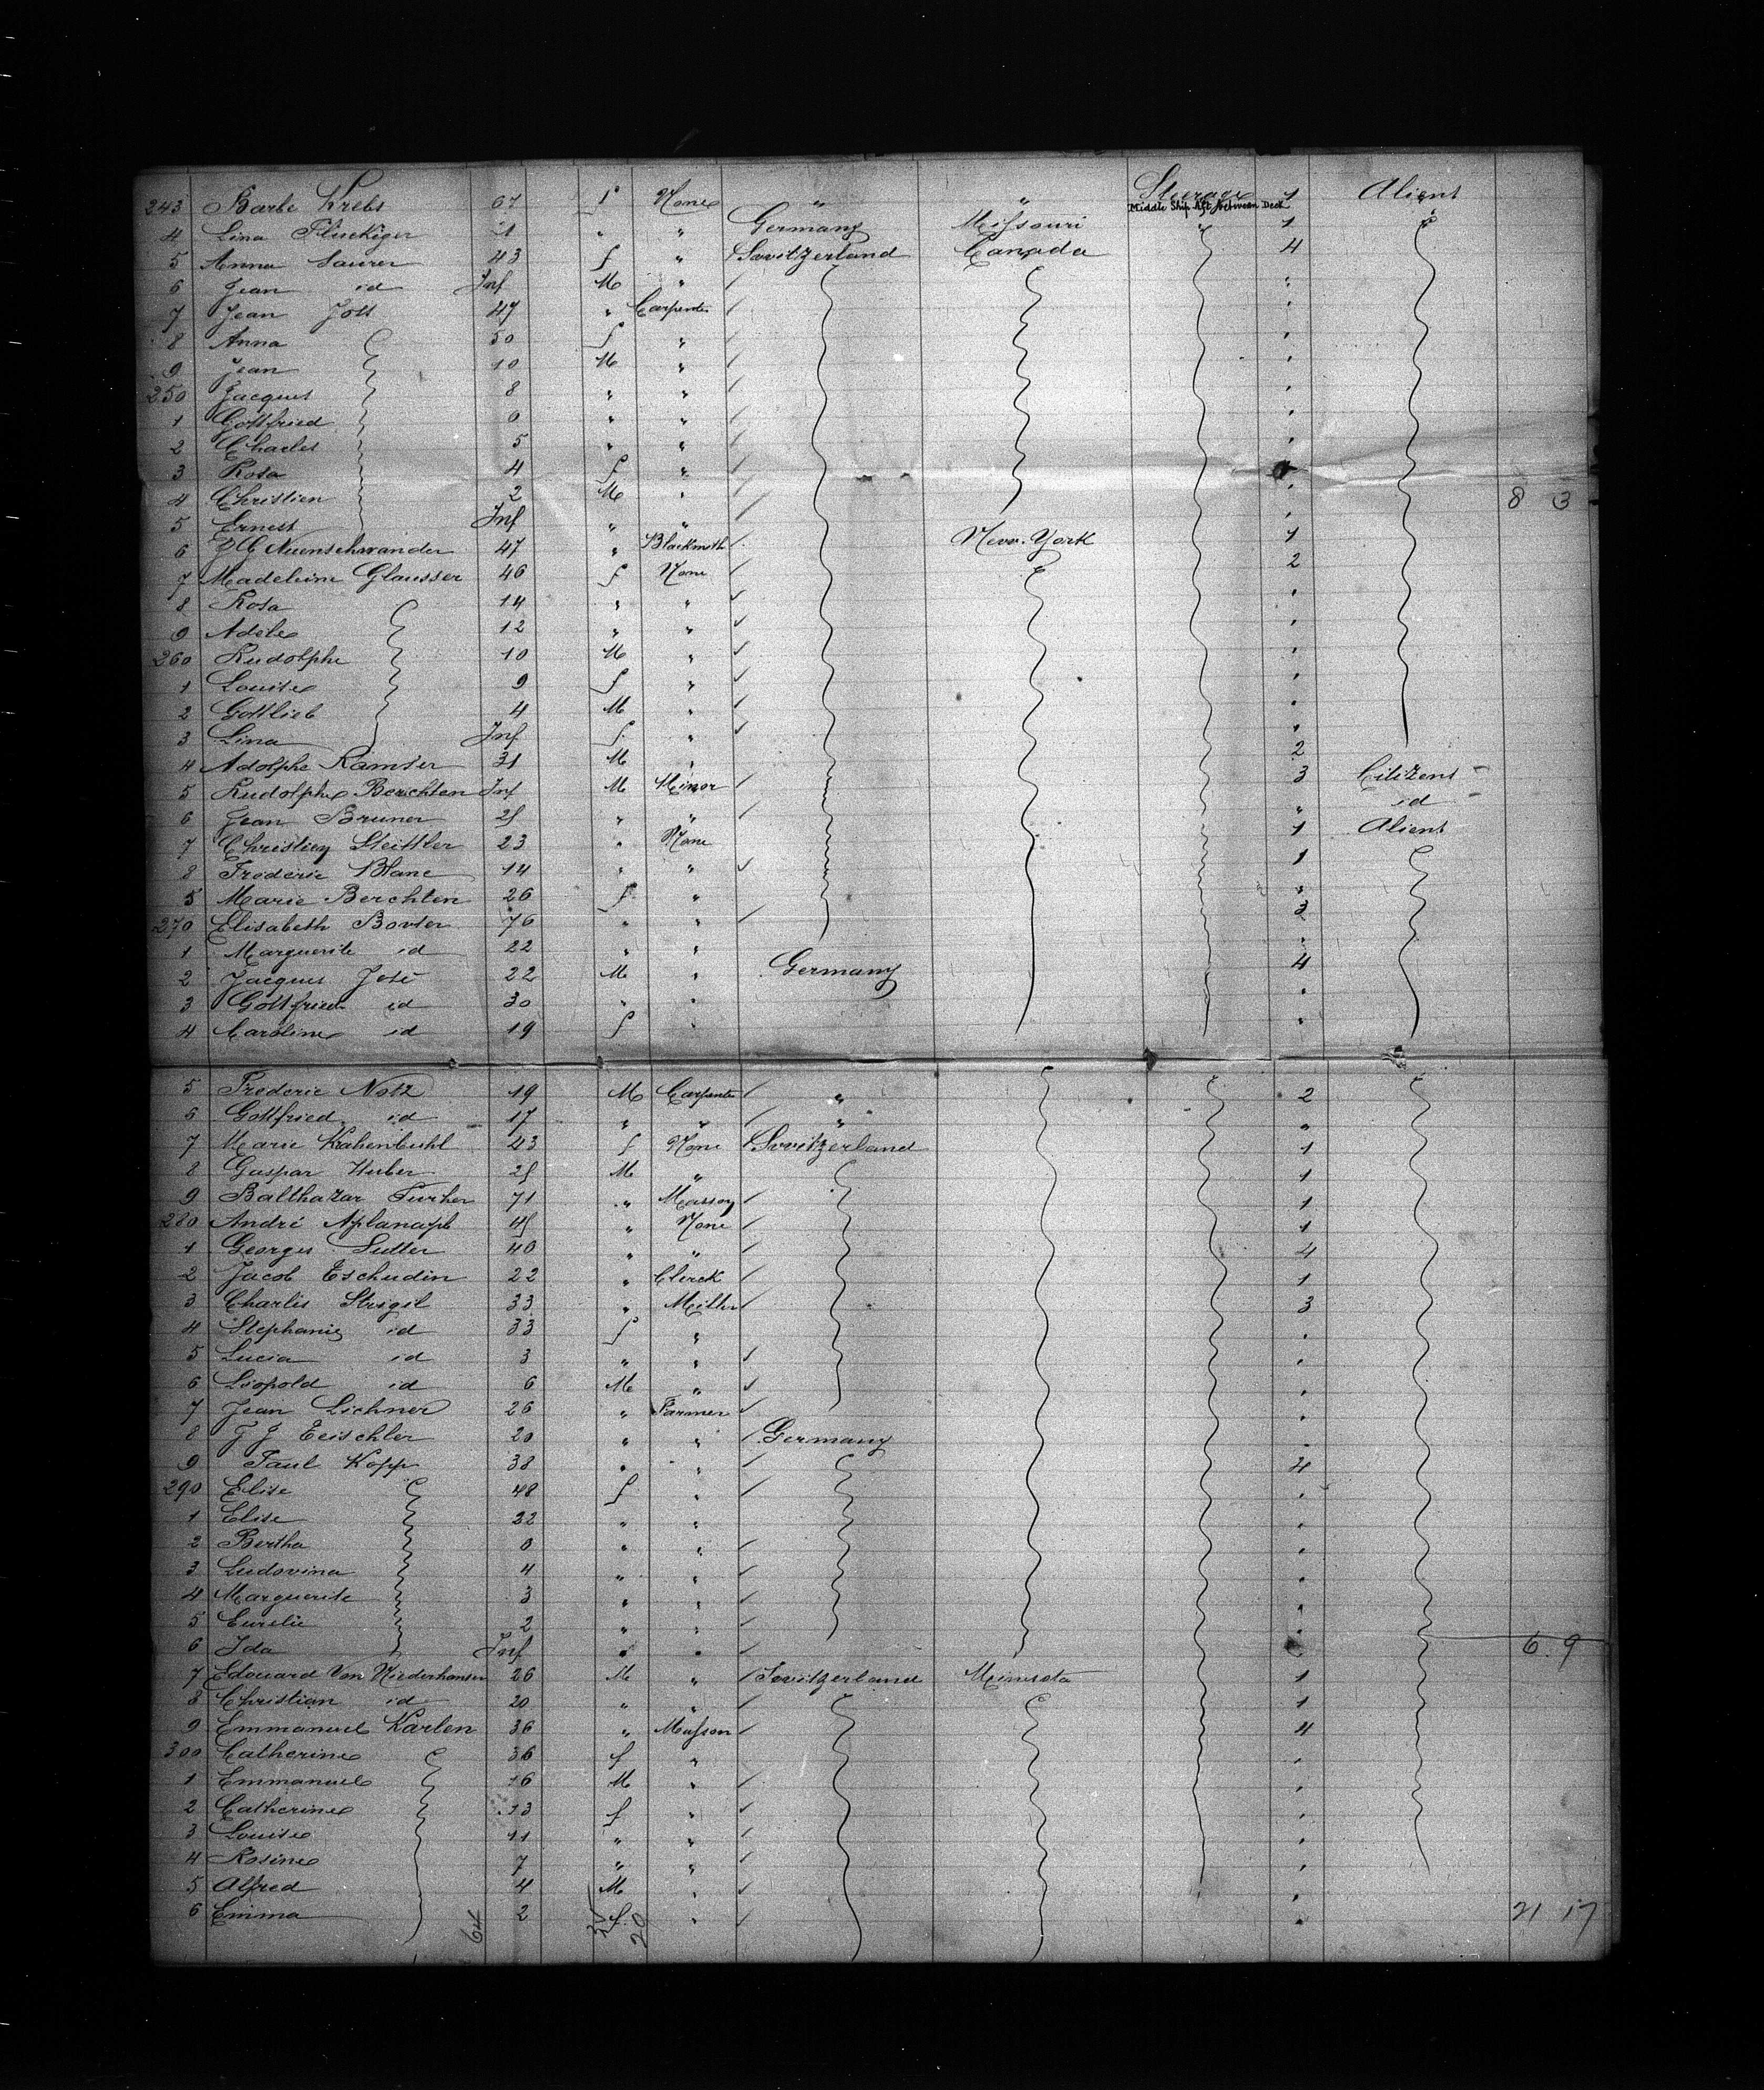 243 Barbe Krebs 67 f None " " Steerage 1 Alient
Middle Ship Aft between Deck
4 Lina Fluckiger 21 " " Germany Missouri " 1 "
5 Anna Saurer 43 f " Switzerland Canada 4
6 Jean id Inf M " "
7 Jean Joss 47 " Carpenter "
8 Anna 50 f " "
9 Jean 10 M " "
250 Jacques 8 " " "
1 Gottfried 6 " " "
2 Charles 5 " " "
3 Rosa 4 f "
4 Christien 2 M " " 8 3
5 Ernest Inf " " "
6 Neenschwander 47 " Blacksmith New-York 1
7 Madeleine Glausser 46 f None 2
8 Rosa 14 " " "
9 Adèle 12 " " "
260 Rudolphe 10 M " "
1 Louise 9 f " "
2 Gottlieb 4 M " "
3 Lina Inf f " "
4 Adolphe Ramser 31 M " 2
5 Rudolphe Berchten Inf M Minor 3 Citizens -
6 Jean Bruner 25 " " " id -
7 Christien Steittler 23 " None 1 Alient
8 Frederic Blanc 14 " " 1
5 Marie Berchten 26 f " "
270 Elisabeth Bovter 76 " " 3
1 Marguerite id 22 " " "
2 Jacques José 22 M " Germany 4
3 Gottfried id 30 " " "
4 Caroline id 19 f " "
5 Frederic Notz 19 M Carpenter " 2
6 Gottfried id 17 " " " "
7 Marie Krahenbuhl 23 f None Switzerland 1
8 Gaspar Huber 25 M " 1
9 Balthazar Furher 71 " Masson 1
280 André Aplanalph 45 " None 1
1 Georges Sutter 40 " " 4
2 Jacob Eschudin 22 " Clerck 1
3 Charles Strigel 33 " Miller 3
4 Stephanie id 33 f " "
5 Lucia id 3 " " "
6 Leopold id 6 M " "
7 Jean Lichner 26 " Farmer "
8 Eeischler 20 " " Germany "
9 Paul Kopp 38 " " 4
290 Elise 48 f " "
1 Elise 22 " " "
2 Bertha 6 " " "
3 Ludovina 4 " " "
4 Marguerite 3 " " "
5 Eurelie 2 " " "
6 Ida Inf " " 6 9
7 Edouard Von Niederhausen 26 M " Switzerland Minesota 1
8 Christian id 20 " " 1
9 Emmanuel Karlen 36 " Masson 4
300 Catherine 36 f " "
1 Emmanuel 16 M " "
2 Catherine 13 f " "
3 Louise 11 " " "
4 Rosine 7 " " "
5 Alfred 4 M " "
6 Emma 2 f " " 21 17
64 20